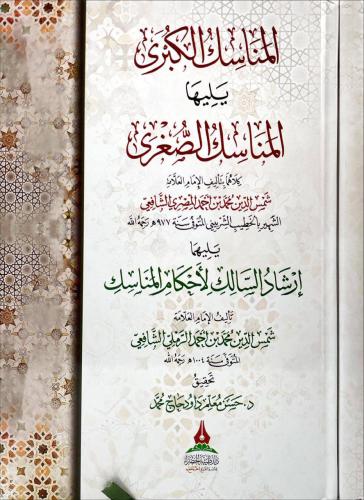 المناسك الكبرى
يليها
المناسك الصغرى
كلاهما بتأليف الإمام العلامة
شمس الدين محمد بن أحمد المصري الشافعي
الشهير بالخطيب الشربيني المتوفى سنة ٩٧٧هـ رحمه الله
يليهما
إرشاد السالك لأحكام المناسك
تأليف الإمام العلامة
شمس الدين محمد بن أحمد الرملي الشافعي
المتوفى سنة ١٠٠٤هـ رحمه الله
تحقيق
د. حسن معلم داود حاج محمد